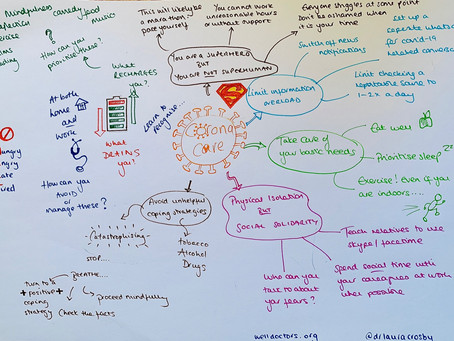 Mindfulness
comedy
food
music
How can you
prioritise these?
What
RECHARGES
you?
This will likely be
a marathon
pace yourself
You cannot work
unreasonable hours
or without support
Everyone struggles at some point
Don't be ashamed when
it is your time
You are a SUPERHERO
BUT
You are NOT SUPERHUMAN
Switch off news
notifications
Set up a
seperate
for covid-19
related
Limit information
OVERLOAD
Limit checking a
reputable
1-2x a day
At both
home
and
work
What
DRAINS
you?
How can you
AVOID
or
manage these?
Learn to
recognise...
Corona
Care
Take care of
your basic needs
Eat well
Prioritise sleep
zz
Exercise! Even if you
are indoors....
Avoid unhelpful
coping strategies
Catastrophising
STOP....
BREATHE...
turn to a
+ positive +
coping
strategy
Check the facts
proceed mindfully
tobacco
Alcohol
Drugs
Physical Isolation
BUT
SOCIAL SOLIDARITY
Teach relatives to use
skype/facetime
Spend social time with
your colleagues at work
when possible
Who can you
talk to about
your fears?
welldoctors.org
@drlauracrosby